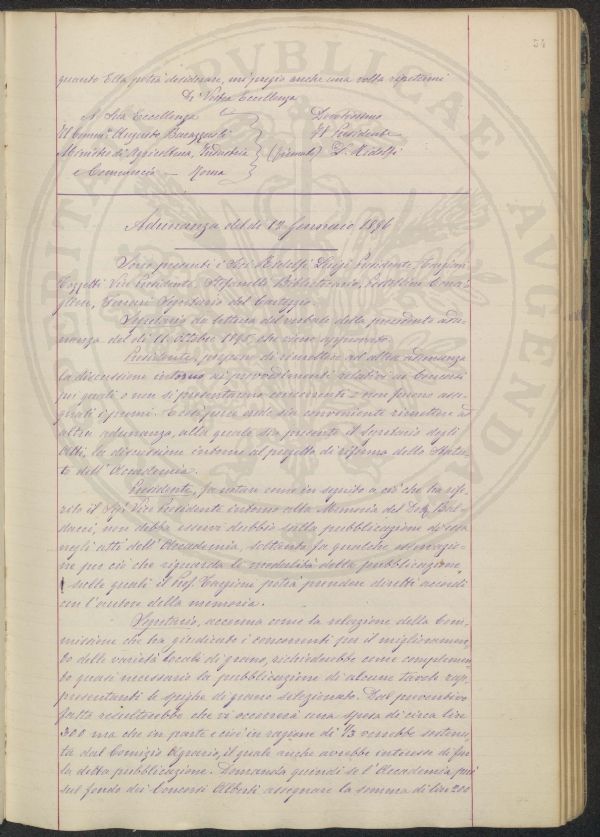 54
quanto Ella potrà desiderare, mi pregio anche una volta ripetermi
Di Vostra Eccellenza
A Sua Eccellenza
Devotissimo
Il Comm. Augusto Barazzuoli
Il Presidente
Ministro di Agricoltura, Industria
(firmato) L. Ridolfi
e Commercio — Roma
Adunanza del dì 12 Gennaio 1896
Sono presenti i Sigi Ridolfi Luigi Presidente, Targioni
Tozzetti Vice Presidente, Stefanelli Bibliotecario,
Ferrari Segretario del Carteggio.
Segretario dà lettura del verbale della precedente adu-
nanza del dì 11 Ottobre 1895, che viene approvato.
Presidente, propone di rimettere ad altra adunanza
la discussione intorno ai provvedimenti relativi ai Concorsi
pei quali o non si presentarono concorrenti o non furono asse-
gnati i premi. E così pure crede sia conveniente rimettere ad
altra adunanza, alla quale sia presente il Segretario degli
Atti, la discussione intorno al progetto di riforma dello Statu-
to dell'Accademia.
Presidente, fa notare come in seguito a ciò che ha rife-
rito il Sigr Vice Presidente intorno alla Memoria del Bal-
dacci, non debba esservi dubbio sulla pubblicazione di essa
negli atti dell'Accademia, soltanto fa qualche osservazio-
ne per ciò che riguarda le modalità della pubblicazione,
sulle quali il Prof. Targioni potrà prendere diretti accordi
con l'autore della memoria.
Segretario, accenna come la relazione della Com-
missione che ha giudicato i concorrenti pel il miglioramen-
to delle varietà locali di grano, richiederebbe come complemen-
to quasi necessario la pubblicazione di alcune tavole rap-
presentanti le spighe di grano selezionato. Dal preventivo
fatto resulterebbe che vi occorrerà una spesa di circa lire
300 ma che in parte e cioè in ragione di 1/3 verrebbe sostenu-
ta dal Comizio Agrario, il quale anche avrebbe interesse di far
la detta pubblicazione. Domanda quindi se l'Accademia può
sul fondo dei Concorsi Alberti assegnare la somma di lire 200